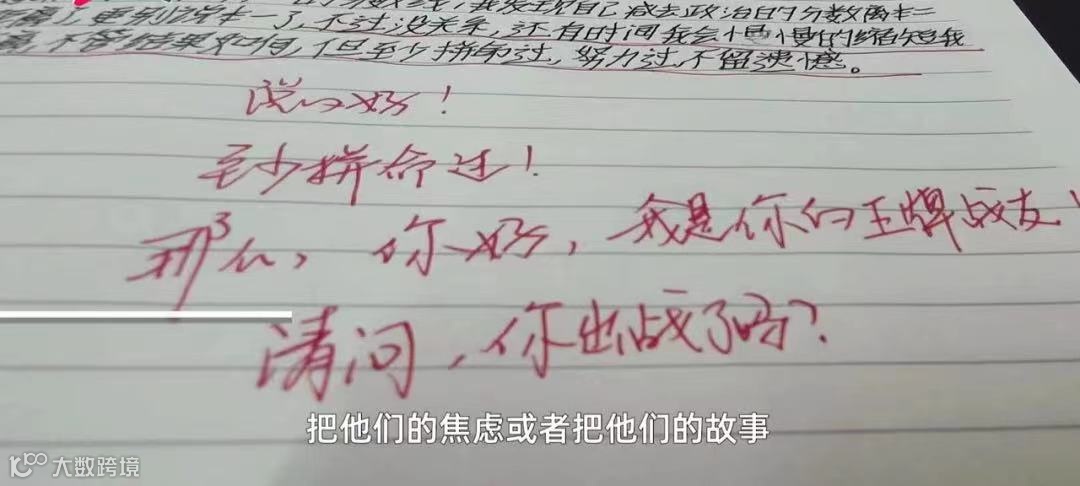 了,更别说卡一了,不过没关系,还有时间我会慢慢的缩短我
,不管结果如何,但至少拼命过,努力过,不留遗憾。
说的好!
至少拼命过!
那么,你好,我是你的王牌战友!
请问,你出战了吗?
把他们的焦虑或者把他们的故事
大数跨境